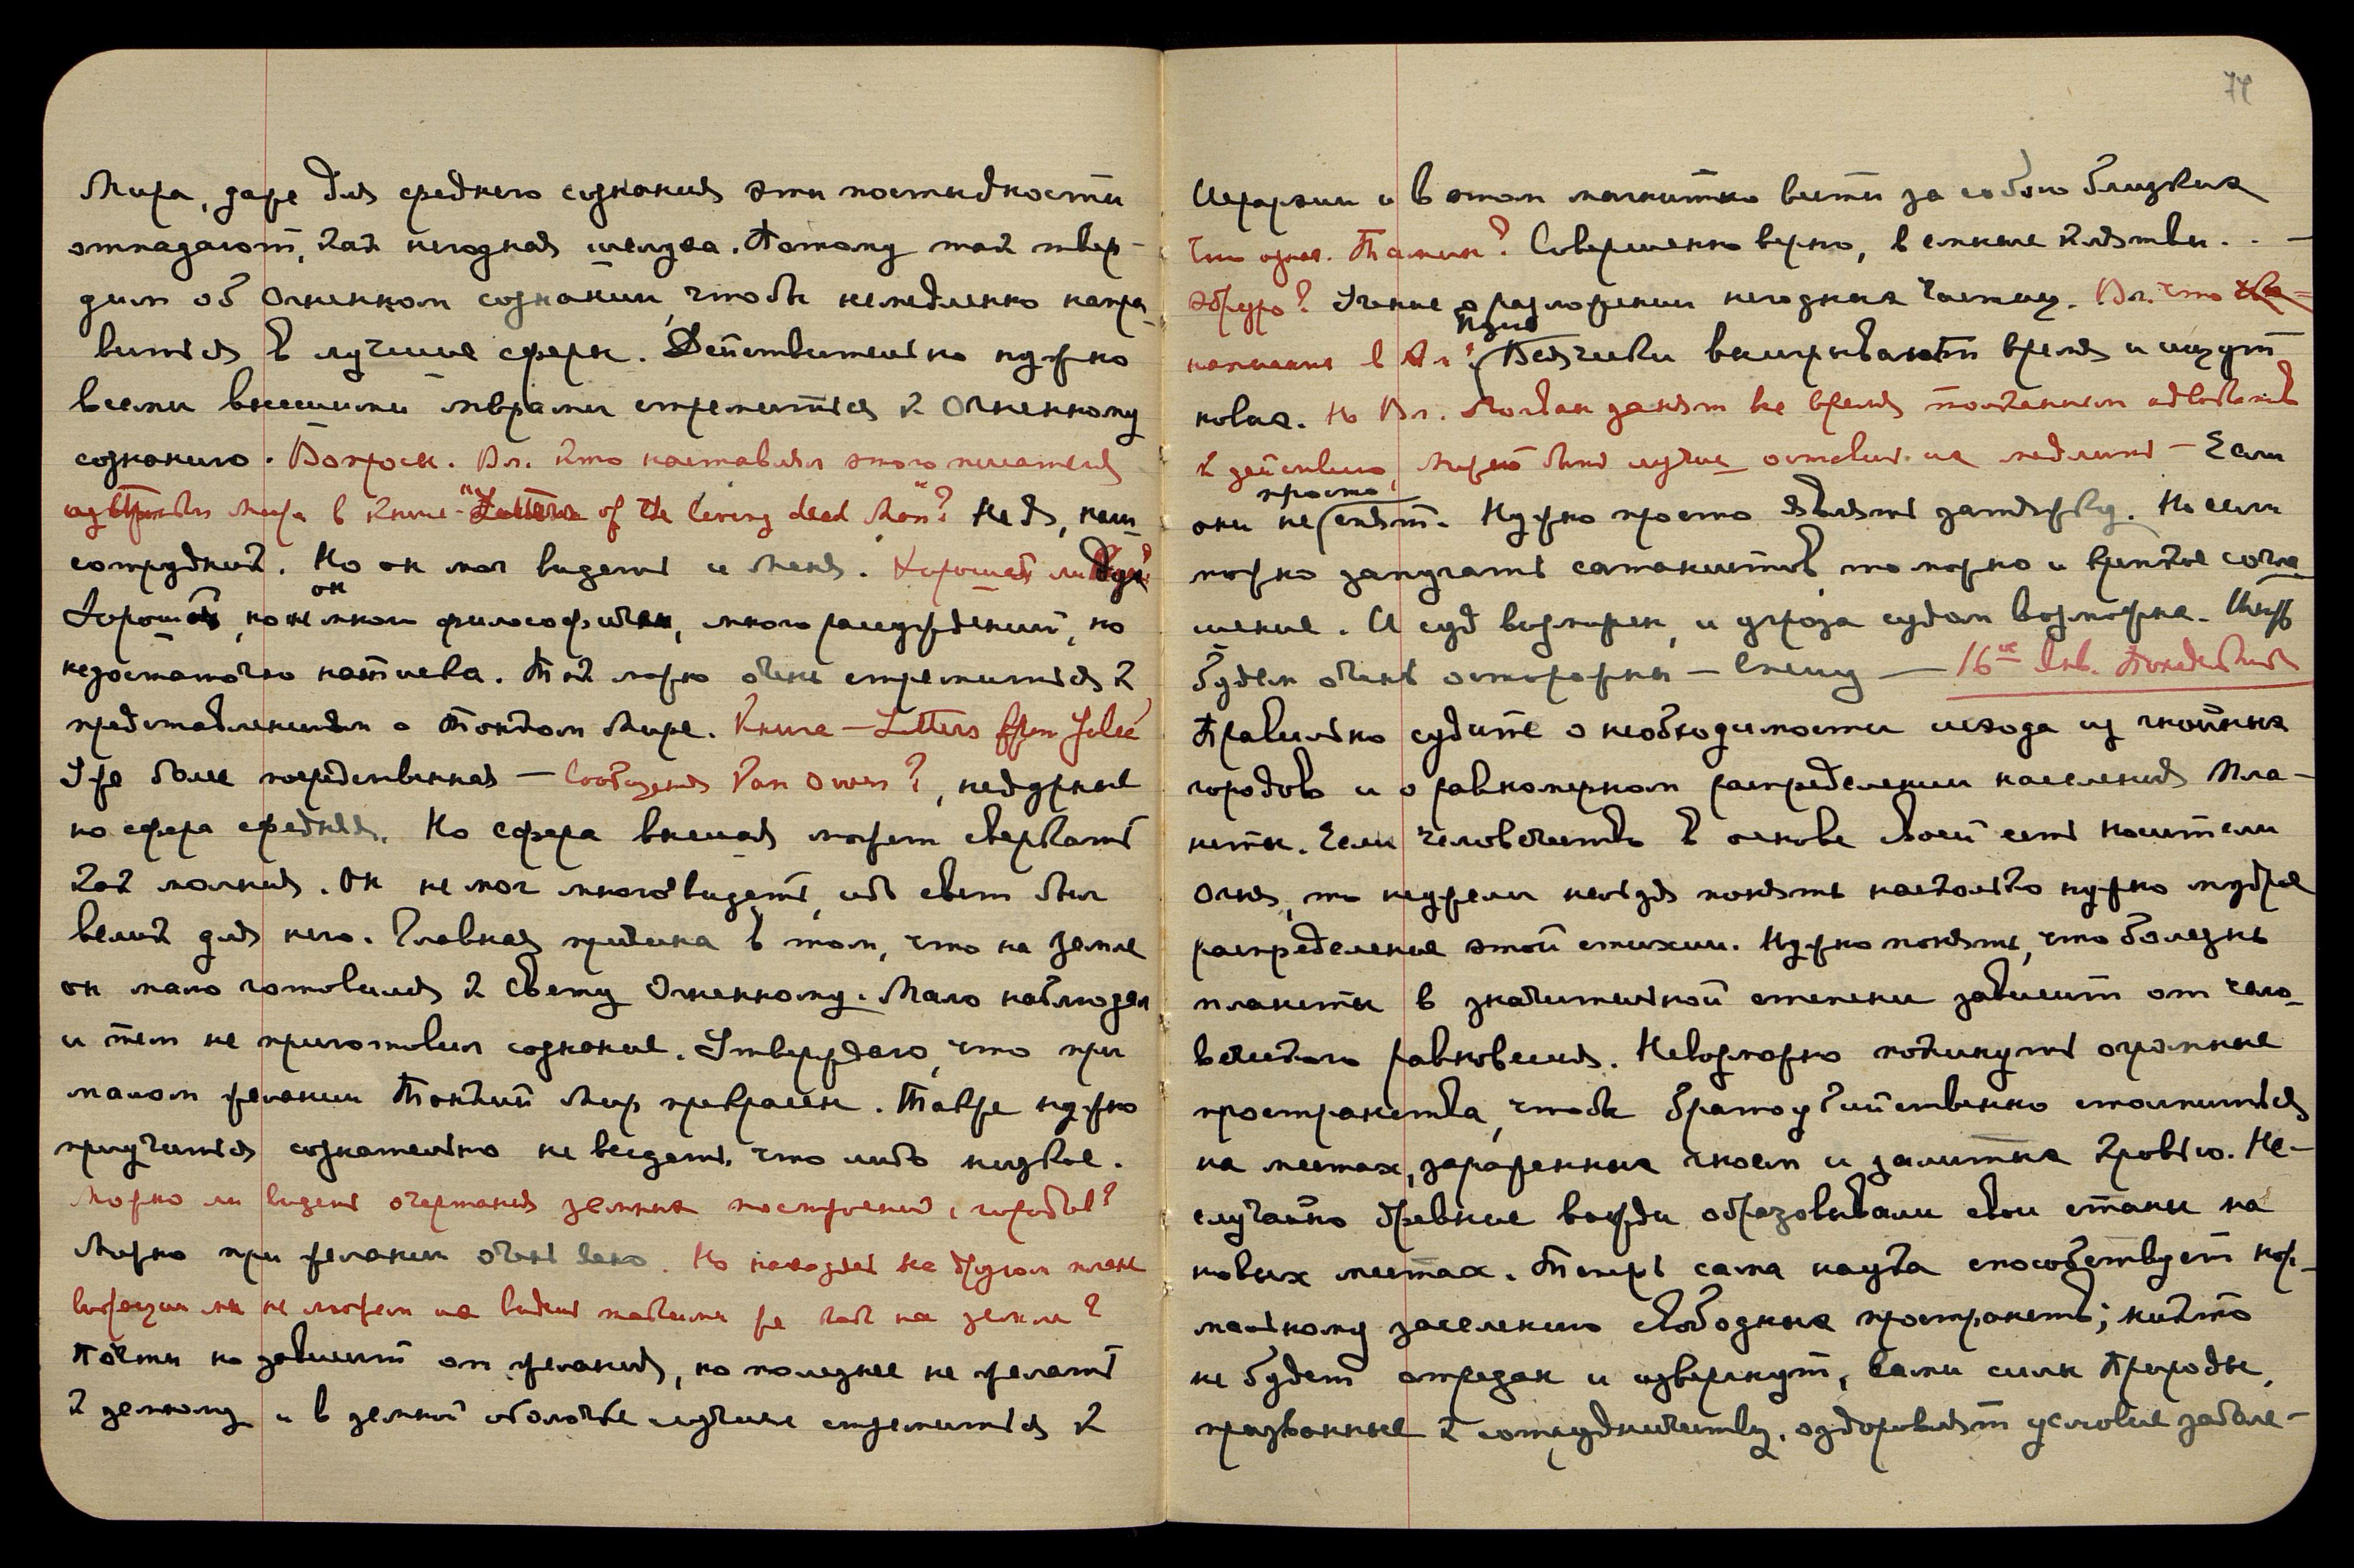 Мира, даже для среднего сознания эти постыдности
отпадают, как негодная шелуха. Потому так твер-
дим об Огненном сознании, чтобы немедленно напра-
виться в лучшие сферы. Действительно нужно
всеми внешними мерами стремиться к Огненному
сознанию. Вопросы. Вл. кто наставлял этого писателя
из Мира в книге "Letters of the living dead Man"? Не Я, наш
сотрудник. Но он мог видеть и Меня. Хороший ли Дух?
Хороший, но он немного философичен, много рассуждений, но
недостаточно натиска. Так можно очень стремиться к
представлениям о Тонком Мире. Книга — Letters from Julia?
Уже более посредственная — Сообщения Van Owen?, недурные
но сфера средняя. Но сфера внешняя может сверкать
как молния. Он не мог много видеть, ибо свет был
велик для него. Главная причина в том, что на земле
он мало готовился к Свету Огненному. Мало наблюдал
и тем не приготовил сознание. Утверждаю, что при
малом желании Тонкий Мир прекрасен. Также нужно
приучиться сознательно не вседать что либо низкое.
Можно ли видеть очертания земных построений, городов?
Можно при желании очень ясно. Но находясь на другом плане
вибрации мы не можем их видеть такими же как на земле?
Почти но зависит от желания, но полезнее не желать
к земному и в земной оболочке лучше стремиться к
74
Иерархии и в этом магнитно вести за собою близких
Совершенно верно, великие клятвы. . —
Учение о разложении негодных частиц. Вл. что
написано в
выигрывают время и ищут
новых. Но Вл. занят все время
к действию, может быть лучше оставить их медлить — Если
они не просто спят. Нужно просто являть задержку. Но если
можно запугать сатанистов, то можно и краткое согла-
шение. И суд возможен, и угроза судом возможна.
будем очень осторожны — спешу — 16ое Янв. Понедельник
Правильно судите о необходимости исхода из гнойных
городов и о равномерном распределении населения Пла-
неты. Если человечество в основе своей есть носители
огня, то неужели нельзя понять насколько нужно мудрое
распределение этой стихии. Нужно понять, что болезнь
планеты в значительной степени зависит от чело-
веческого равновесия. Невозможно покинуть огромные
пространства, чтобы братоубийственно столпиться
на местах, зараженных гноем и залитых кровью. Не-
случайно древние вожди образовывали свои станы на
новых местах. Теперь сама наука способствует нор-
мальному заселению свободных пространств; никто
не будет отрезан и извергнут, сами силы Природы,
призванные к сотрудничеству, оздоровят условие забале-